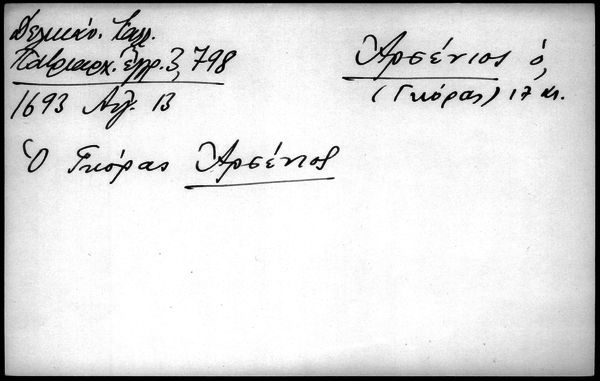 Δελικάν. Καλλ.
Πατριαρχ. ἔγγρ. 3, 798
1693 Αὐγ. 13
Ἀρσένιος ὁ,
(Γκιόρας) 17 αἰ.
Ὁ Γκιόρας Ἀρσένιος